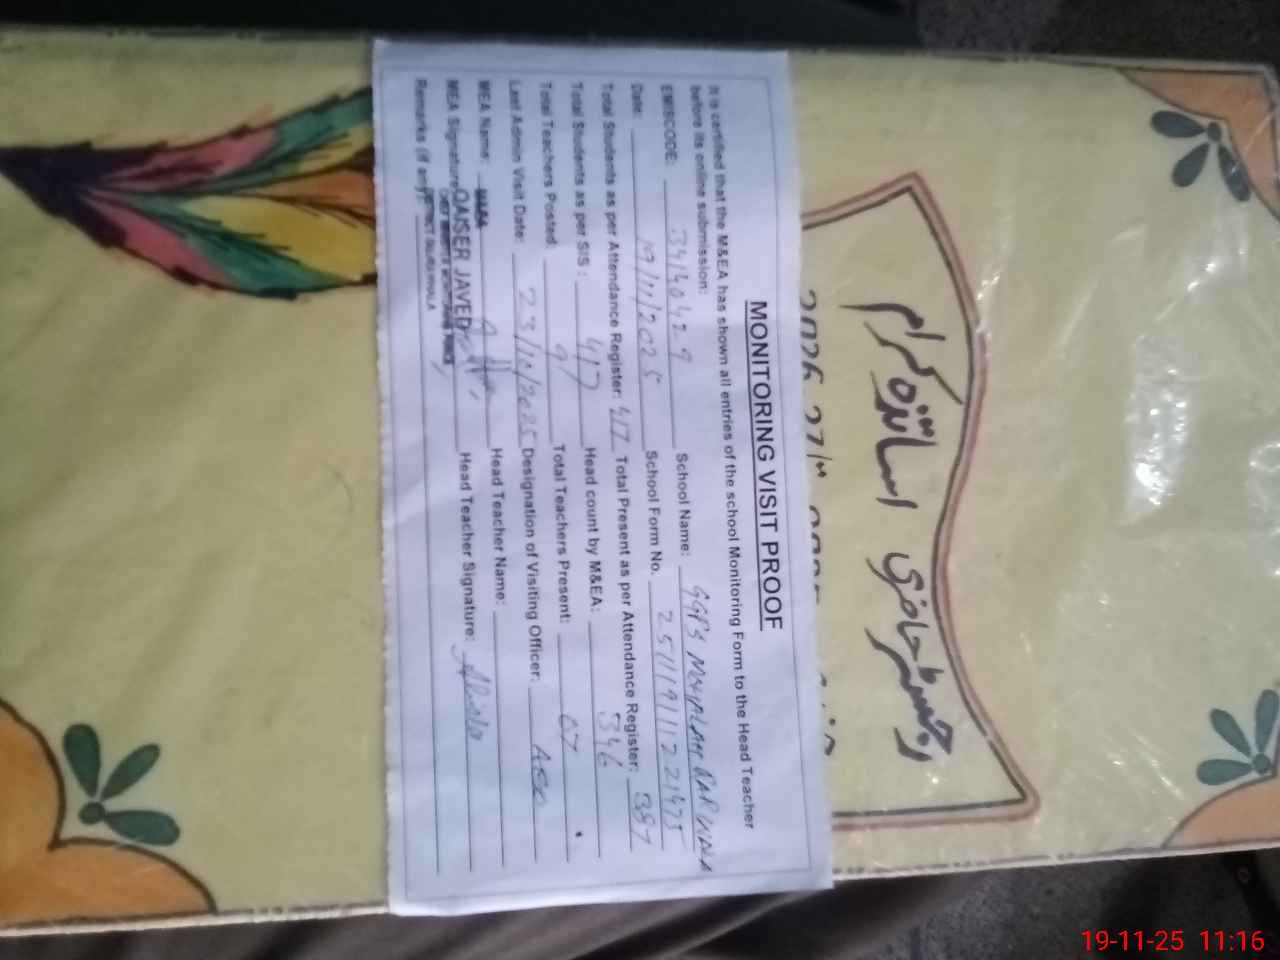 MONITORING VISIT PROOF
It is certified that the M&EA has shown all entries of the school Monitoring Form to the Head Teacher
before its online submission:
EMISCODE: 34140429 School Name: GGPS
Date: 19/11/2025 School Form No. 251119111221475
Total Students as per Attendance Register: 417 Total Present as per Attendance Register: 387
Total Students as per SIS : 417 Head count by M&EA: 346
Total Teachers Posted 9 Total Teachers Present: 07
Last Admin Visit Date: 23/10/2025 Designation of Visiting Officer: AEO
MEA Name: Head Teacher Name:
MEA Signature QAISER JAVED Head Teacher Signature:
Remarks (if any):
رجسٹر حاضری اساتذہ کرام
19-11-25 11:16